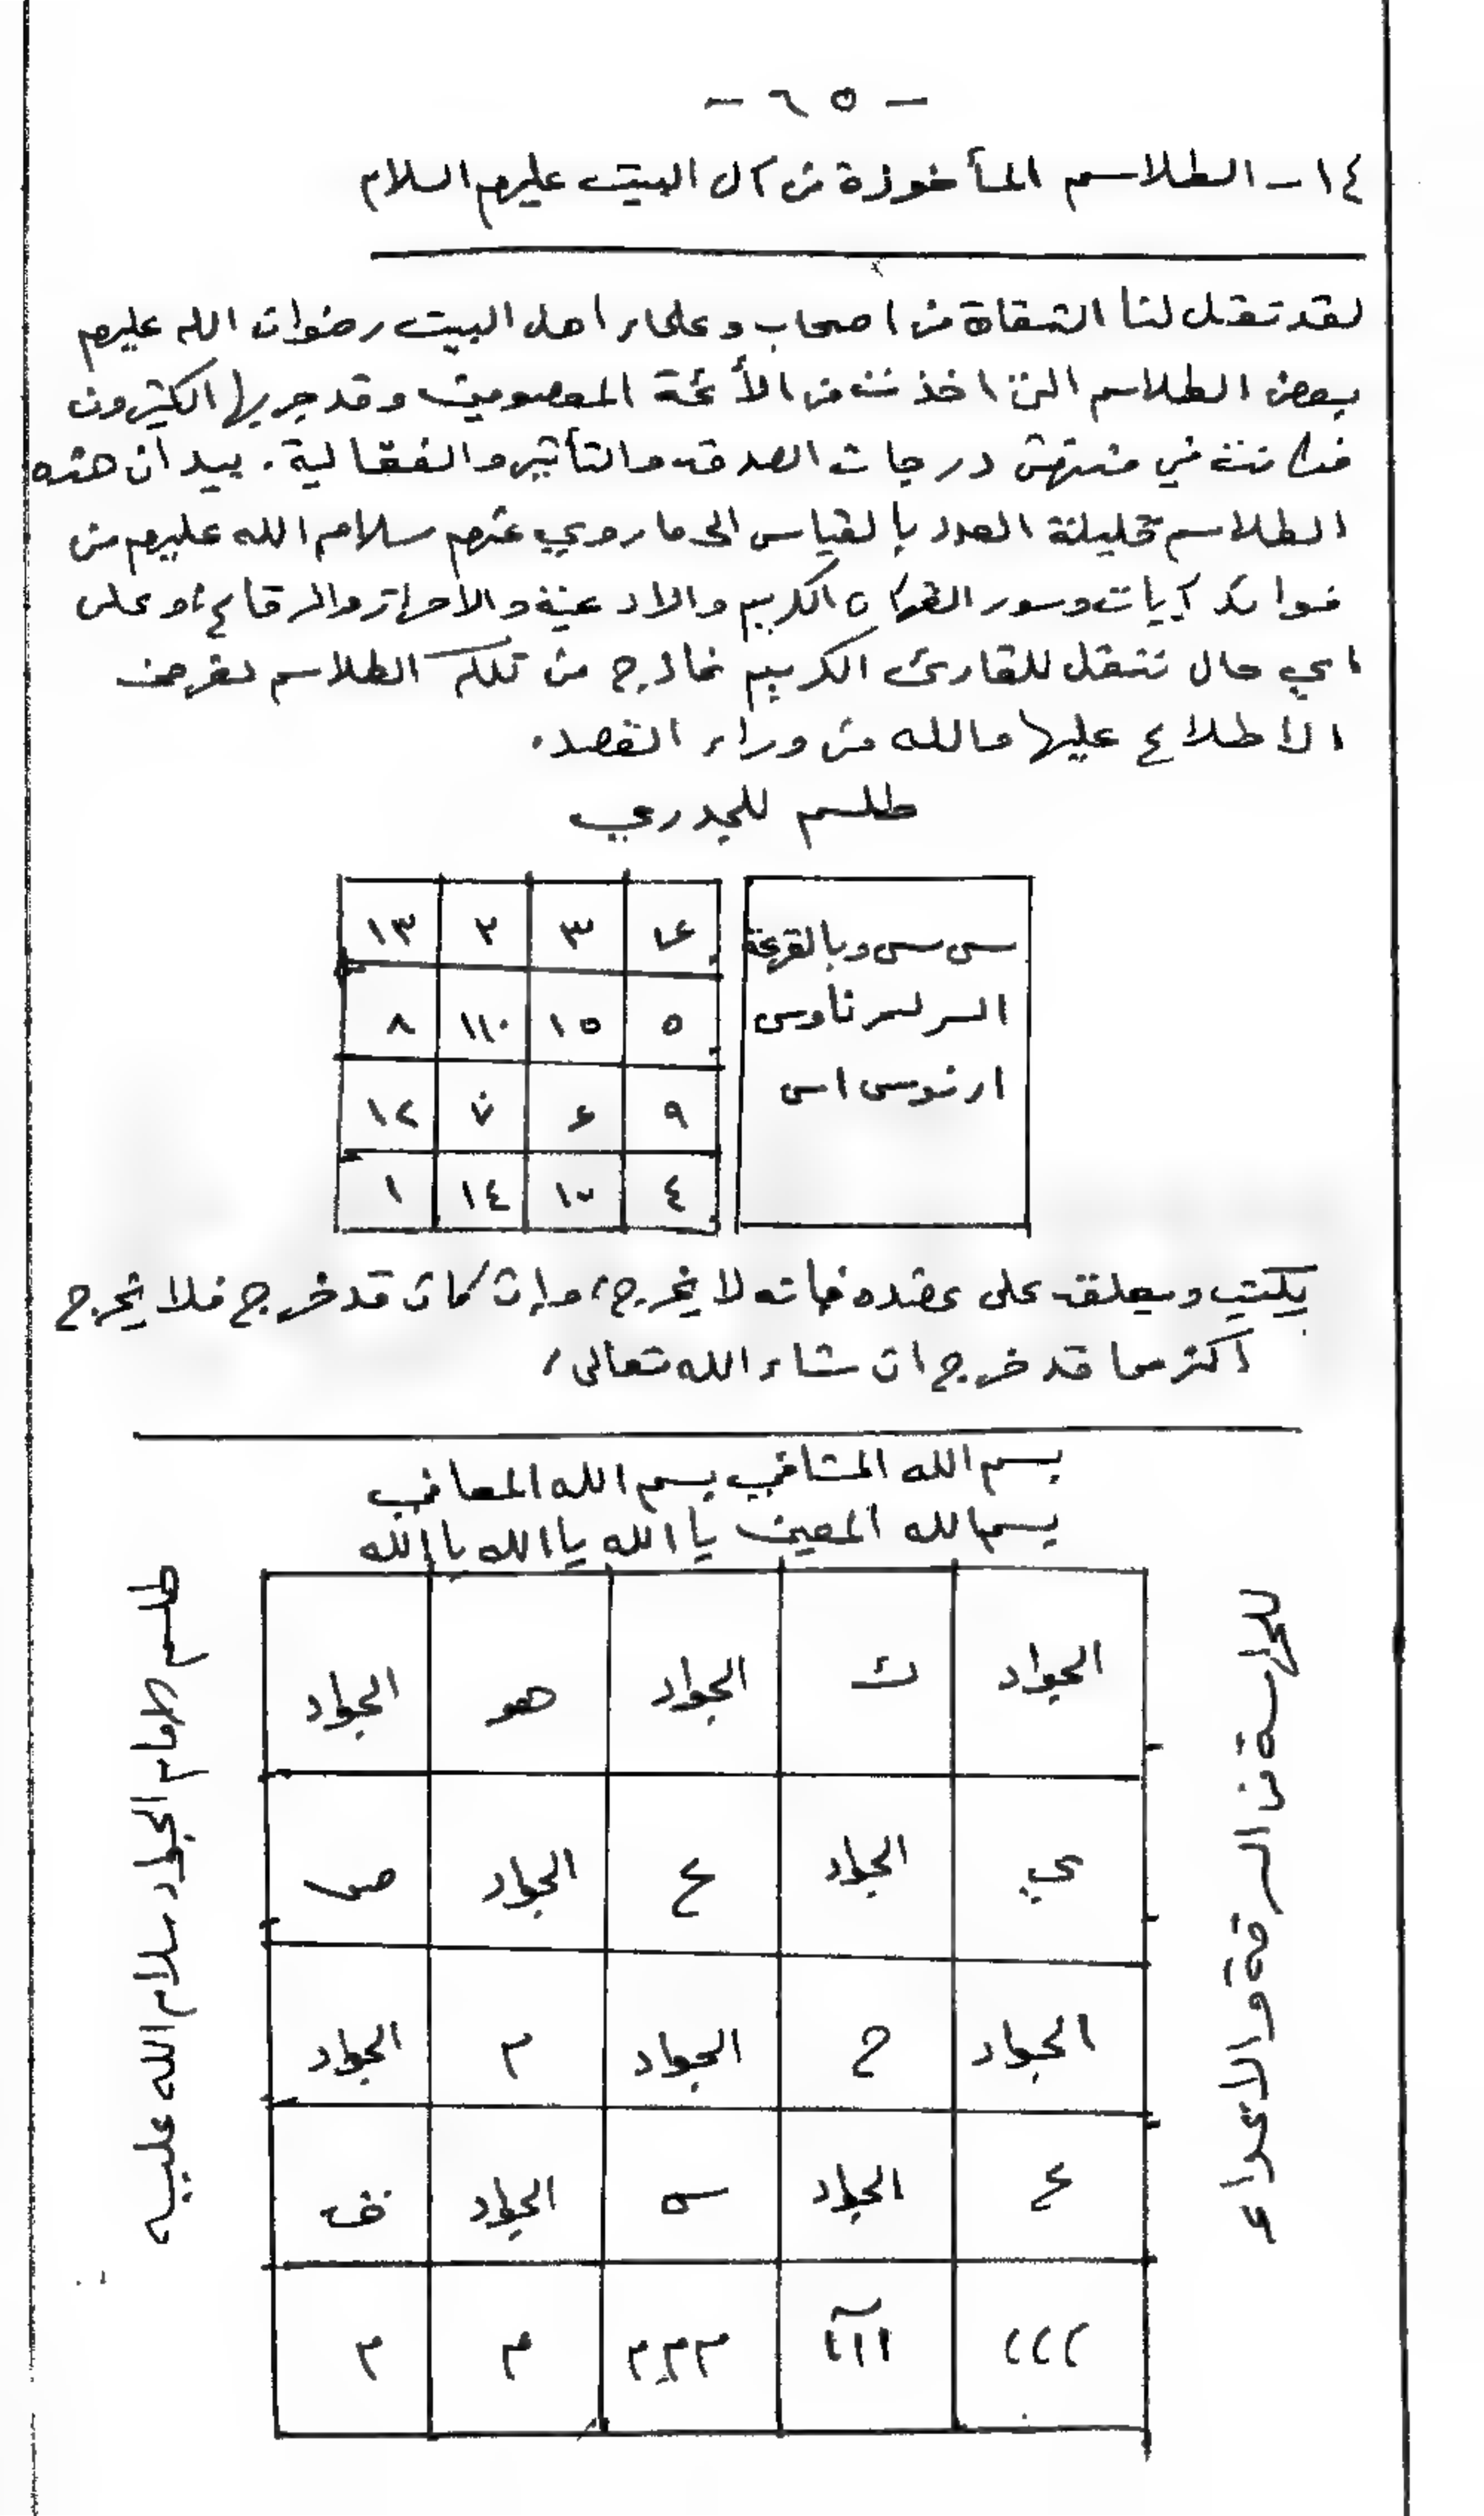 - ٦٥ -
١٤ - الطلاسم المأخوذة من آل البيت عليهم السلام
لقد نقل لنا الثقاة من اصحاب وعلماء اهل البيت رضوان الله عليهم
بعض الطلاسم التي اخذت من الأئمة المعصومين وقد جربها الكثيرون
فكانت في منتهى درجات الصدق والتأثير والفعالية. بيد ان هذه
الطلاسم قليلة العدد بالقياس الى ما روي عنهم سلام الله عليهم من
فوائد آيات وسور القرآن الكريم والادعية والأحراز والرقاع، وعلى
اي حال ننقل للقارئ الكريم نماذج من تلك الطلاسم لغرض
الاطلاع عليها والله من وراء القصد.
طلسم للجدري
سى سى وبالقرعة
السر لسر ناوسى
ارنوسى اسى
٣ ٢ ١٣
٥ ١٥ ١١٠ ٨
٩ ٧ ١٢
٤ ١٤ ١
يكتب ويعلق على عضده فانه لا يخرج، وان كان قد خرج فلا يخرج
أكثر مما قد خرج ان شاء الله تعالى،
بسم الله الشافي بسم الله المعافي
بسم الله المعين يا الله يا الله يا الله
للحراسة من السرقة والأعداء
الجواد ك الجواد هو الجواد
ي الجواد ع الجواد ص
الجواد ح الجواد م الجواد
ع الجواد ه الجواد ف
ددد آااا م م م م م
طلسم الامام الجواد سلام الله عليه